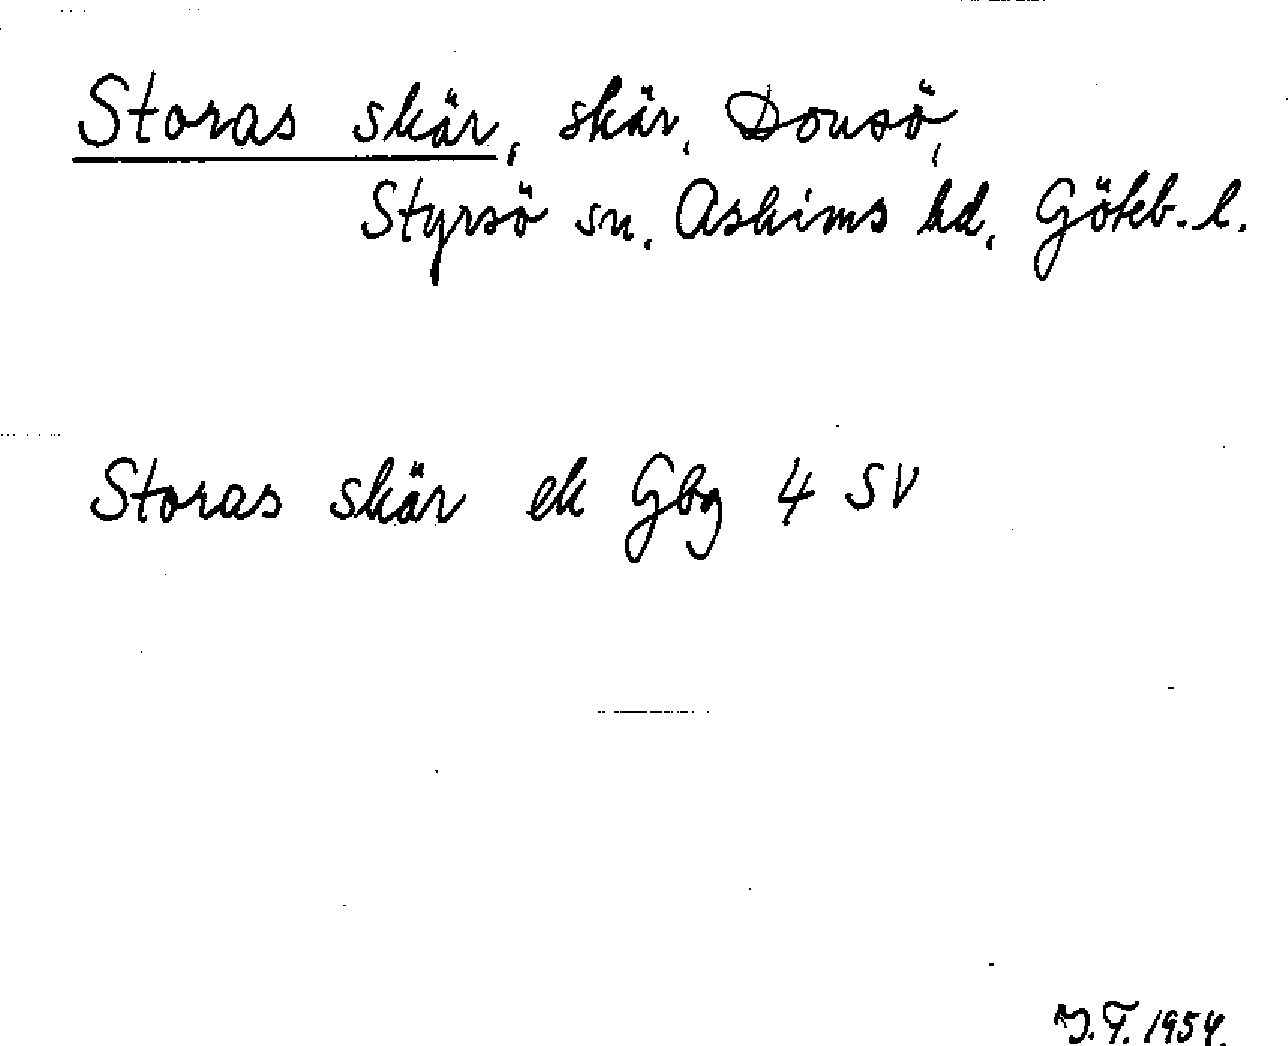 Storas skär, skär, Donsö,
Styrsö sn, Askims hd, Göteb. l.
Storas skär ek Gbg 4 SV
J.F. 1954.